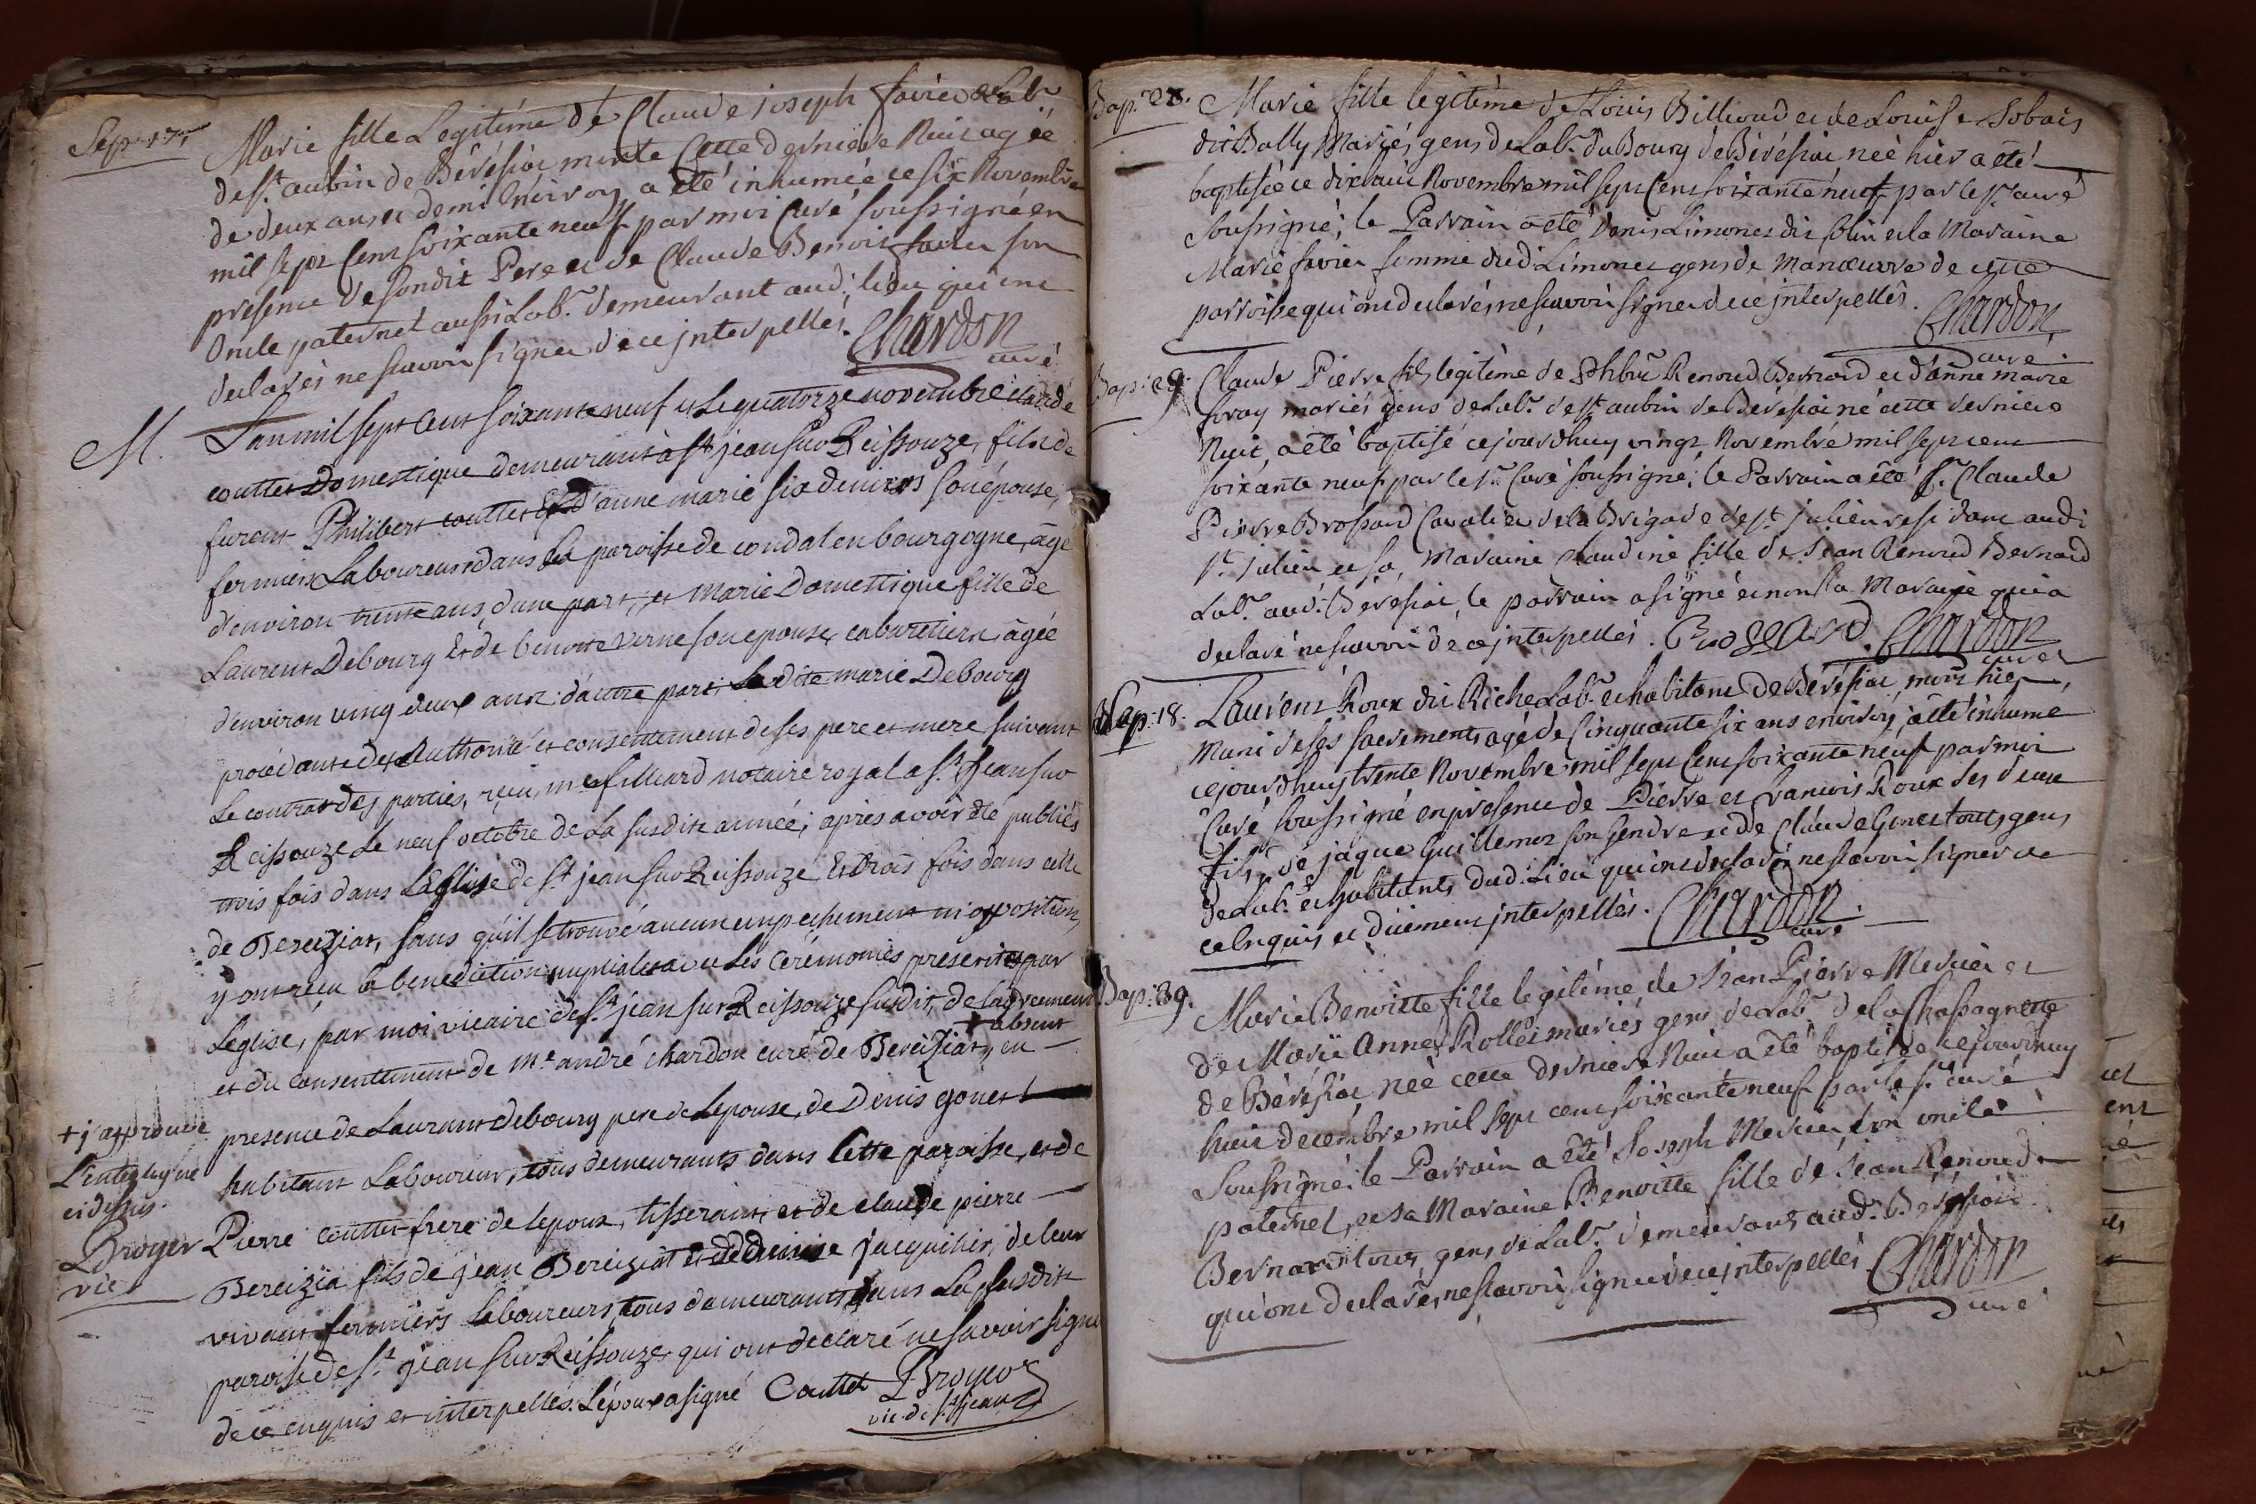 Sep. 17.
Marie fille Legitime de Claude joseph favier Lab.r
de S.t aubin de Béréfiac morte Cette derniere Nuit agée
de deux ans et demi environ, a été inhumée ce six Novembre
mil sept Cens soixante neuf par moi Curé soussigné en
presence de sondit Pere et de Claude Benoit favier son
Oncle paternel aussi Lab.r demeurant aud. lieu qui ont
declarés ne scavoir signer de ce jnterpellés. Chardon
curé
M. L'an mil sept cent soixante neuf et le quatorze novembre claude
couttet Domestique demeurant à s.t jean sur Reissouze, fils de
furent Philibert couttet Et d'anne marie six deniers son épouse,
fermiers Laboureurs dans la paroisse de condal en bourgogne, âgé
d'environ trente ans, d'une part, et Marie Domestique fille de
Laurent Debourg Et de benoite verne son epouse, cabaretiers âgée
d'environ vingt deux ans d'autre part: La dite marie Debourg
procédante de l'Authorité et consentement de ses pere et mere suivant
Le contrat des parties, reçu me filliard notaire royal a s.t Jean sur
Reissouze Le neuf octobre de La susdite année; après avoir été publiés
trois fois dans L'Eglise de s.t jean sur Reissouze Et trois fois dans celle
de Bereiziat, sans qu'il se trouve aucun empechement ni opposition,
y ont reçu la benediction nuptiale avec Les Cérémonies prescrites par
Leglise, par moi vicaire de s.t jean sur Reissouze susdit, de l'agrement
et du consentement de M.e andré chardon curé de Bereiziat, + absent en
presence de Laurant Debourg pere de Lepouse, de Denis gonet
habitant Laboureur, tous demeurants dans Cette paroisse, et de
Pierre couttet frere de lepoux, tisserant, et de claude pierre
Bereizia fils de jean Bereiziat et de Denise jacquihir, de leur
vivant fermiers laboureurs, tous demeurants dans La susdite
paroisse de s.t jean sur Reissouze, qui ont declaré ne savoir signer
de ce enquis et interpellés. L'époux a signé Couttet Broyer
vic. de s.t Jean
+ j'approuve
L'interligne
ci dessus.
Broyer
vic.
Bap. 28. Marie fille legitime de Louis Billioud et de Louise Sobais
dit Bolly Mariés, gens de Lab.r du Bourg de Béréfiac née hier a été
baptisée ce dixhuit Novembre mil sept Cens soixante neuf par le s.r curé
soussigné; le Parrain a été Denis Limonet dit Colin et la Maraine
Marie favier femme dud. Limonet gens de manœuvre de cette
parroisse qui ont declarés ne scavoir signer de ce jnterpellés. Chardon
curé
Bap. 29. Claude Pierre fils legitime de Phber Renoud Bernard et d'anne marie
foray mariés gens de Lab.r de S.t aubin de Béréfiac né cette derniere
Nuit, a été baptisé cejourdhuy vingt Novembre mil sept cens
soixante neuf par le s.r Curé soussigné; le Parrain a été s.r Claude
Pierre Brossard Cavalier de la Brigade de S.t julien residant audi
S.t julien et sa Maraine Claudine fille de Jean Renoud Bernard
Lab.r aud. Béréfiac, le parrain a signé et non la Maraine qui a
declaré ne scavoir de ce jnterpellés. Brossard. Chardon
curé
Sep: 18. Laurens Roux dit Riche Lab.r et habitant de Béréfiac, mort hier,
Muni de ses sacrements agé de Cinquante six ans environ, a été inhumé
cejourdhuy trente Novembre mil sept Cens soixante neuf par moi
Curé soussigné en presence de Pierre et francois Roux ses deux
fils, de jaque Guillemot son Gendre et de Claude Gonet tous gens
de Lab.r et habitants dud. Lieu qui ont declaré ne scavoir signer de
ce enquis et duement jnterpellés. Chardon
curé
Bap: 30. Marie Benoitte fille legitime de Jean Pierre Mercier et
de Marie Anne Rollet mariés gens de Lab.r de la Chassagnette
de Béréfiac, née cette derniere Nuit a été baptisée cejourdhuy
huit decembre mil sept cens soixante neuf par le s.r curé
soussigné; le Parrain a été Joseph Mercier son oncle
paternel, et sa Maraine Benoitte fille de Jean Renoud
Bernard tous, gens de Lab.r demeurant aud. Béréfiac
qui ont declarés ne scavoir signer de ce jnterpellés Chardon
curé